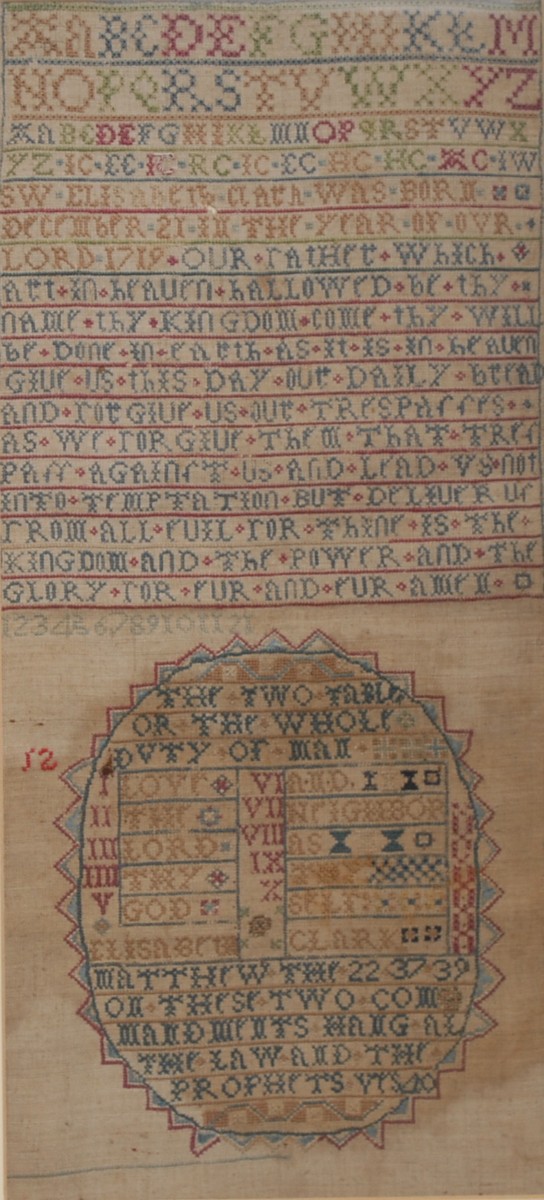 A A B C D E F G H I K L M
N O P Q R S T V W X Y Z
A A B C D E F G H I K L M N O P Q R S T V W X
Y Z · IC · EC · RC · IC · EC · HC · HC · C · IW
SW · ELISABETH CLARK · WAS · BORN
DECEMBER · 21 · IN · THE · YEAR · OF · OVR
LORD · 1719 · OUR · FATHER · WHICH
ART · IN · HEAVEN · HALLOWED · BE · THY
NAME · THY · KINGDOM · COME · THY · WILL
BE · DONE · IN · EARTH · AS · IT · IS · IN · HEAVEN
GIVE · US · THIS · DAY · OUR · DAILY · BREAD
AND · FORGIVE · US · OUR · TRESPASSES
AS · WE · FORGIVE · THEM · THAT · TRES
PASS · AGAINST · US · AND · LEAD · VS · NOT
INTO · TEMPTATION · BUT · DELIVER US
FROM · ALL · EUIL · FOR · THINE · IS · THE
KINGDOM · AND · THE · POWER · AND · THE
GLORY · FOR · EUR · AND · EUR · AMEN
123456789101121
THE · TWO TABLE
OR · THE · WHOLE
DVTY · OF · MAN
12
I LOVE VI AND
II THE VII NEIGHBOR
III LORD VIII AS
IIII THY IX
V GOD X SELF
ELISABETH CLARK
MATTHEW · THE · 22 · 37 · 39
ON · THESE · TWO · COM
MANDMENTS HANG · AL
THE · LAW · AND · THE
PROPHETS VES 40